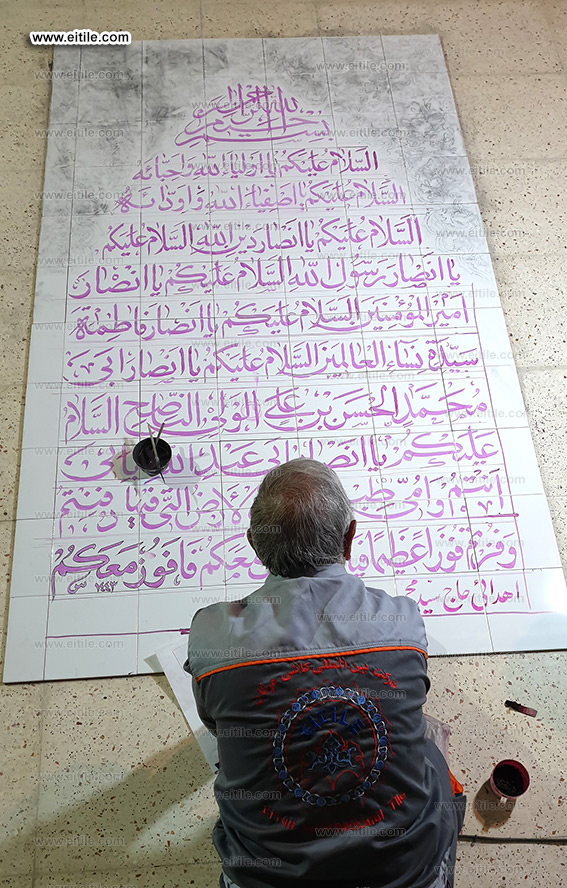 www.eitile.com
بسم الله الرحمن الرحیم
السلام علیکم یا اولیاء الله و احبائه
السلام علیکم یا اصفیاء الله و اودائه
السلام علیکم یا انصار دین الله السلام علیکم
یا انصار رسول الله السلام علیکم یا انصار
امیر المؤمنین السلام علیکم یا انصار فاطمة
سیدة نساء العالمین السلام علیکم یا انصار ابی
محمد الحسن بن علی الولی الناصح السلام
علیکم یا انصار ابی عبد الله بابی
انتم و امی طبتم الارض التی فیها دفنتم
و فزتم فوزا عظیما معکم فافوز معکم
اهدائی حاج سید ۱۴۴۳
EITILE